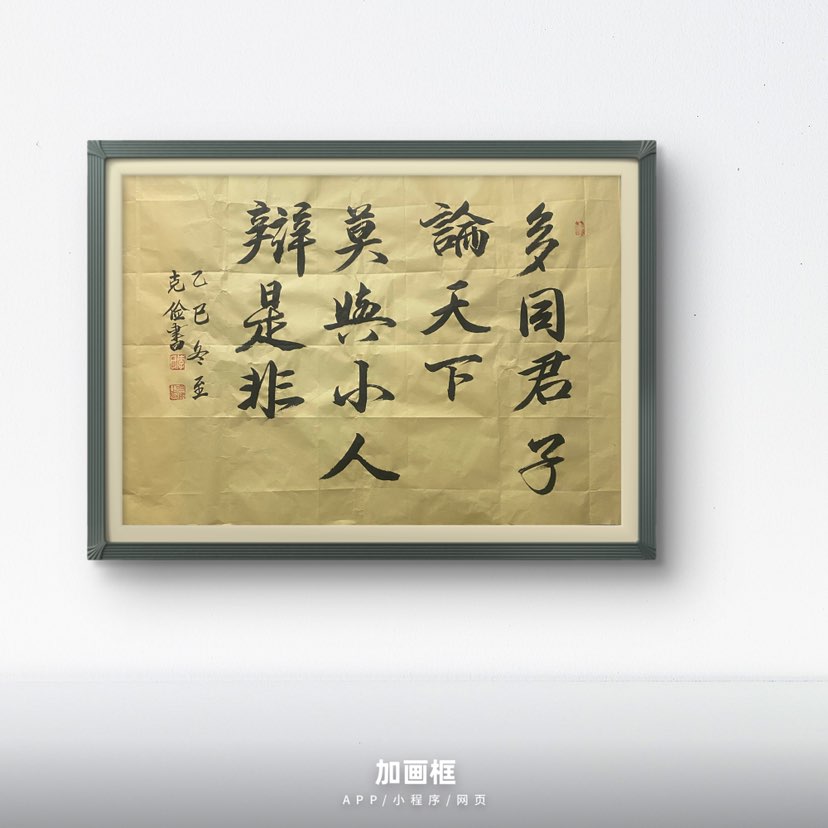 多同君子
論天下
莫與小人
辯是非
乙巳冬至
克儉書
加画框
APP/小程序/网页